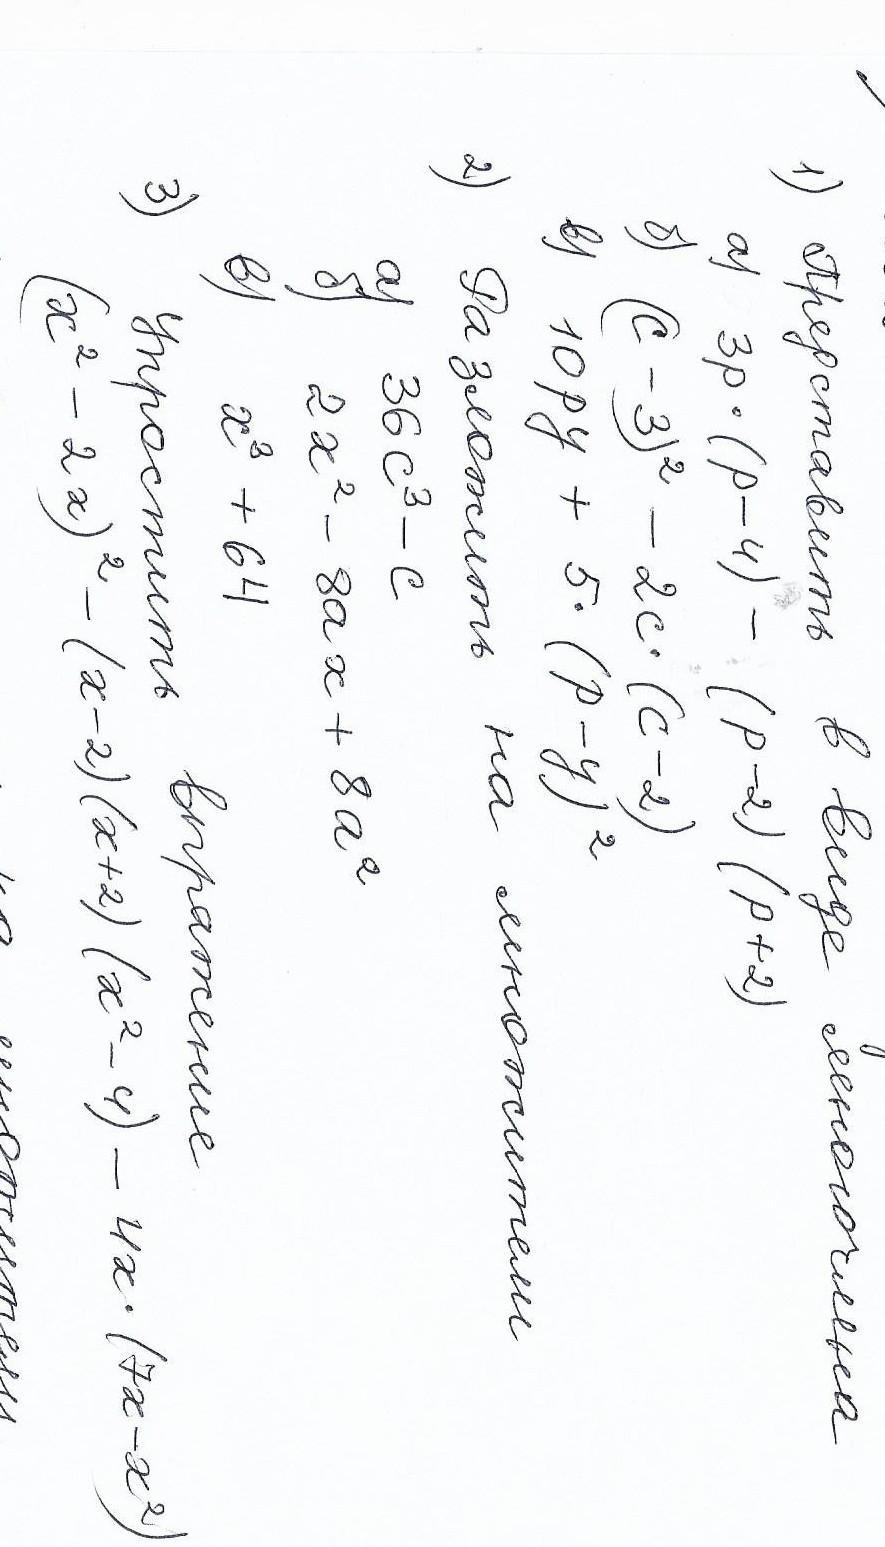 1) Представить в виде многочлена
а) 3p·(p-4) - (p-2)(p+2)
б) (c-3)² - 2c·(c-2)
в) 10py + 5·(p-y)²
2) Разложить на множители
а) 36c³-c
б) 2x²-8ax+8a²
в) x³+64
3) Упростить выражение
(x²-2x)²-(x-2)(x+2)(x²-4)-4x·(7x-x²)